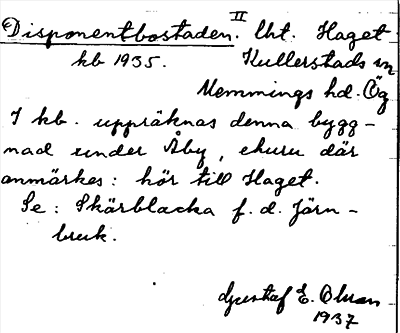 Disponentbostaden. II lht. Haget
kb 1935. Kullerstads sn
Memmings hd. Ög
I kb. uppräknas denna bygg-
nad under Åby, ehuru där
anmärkes: hör till Haget.
Se: Skärblacka f. d. Järn-
bruk.
Gustaf E. Olsson
1937